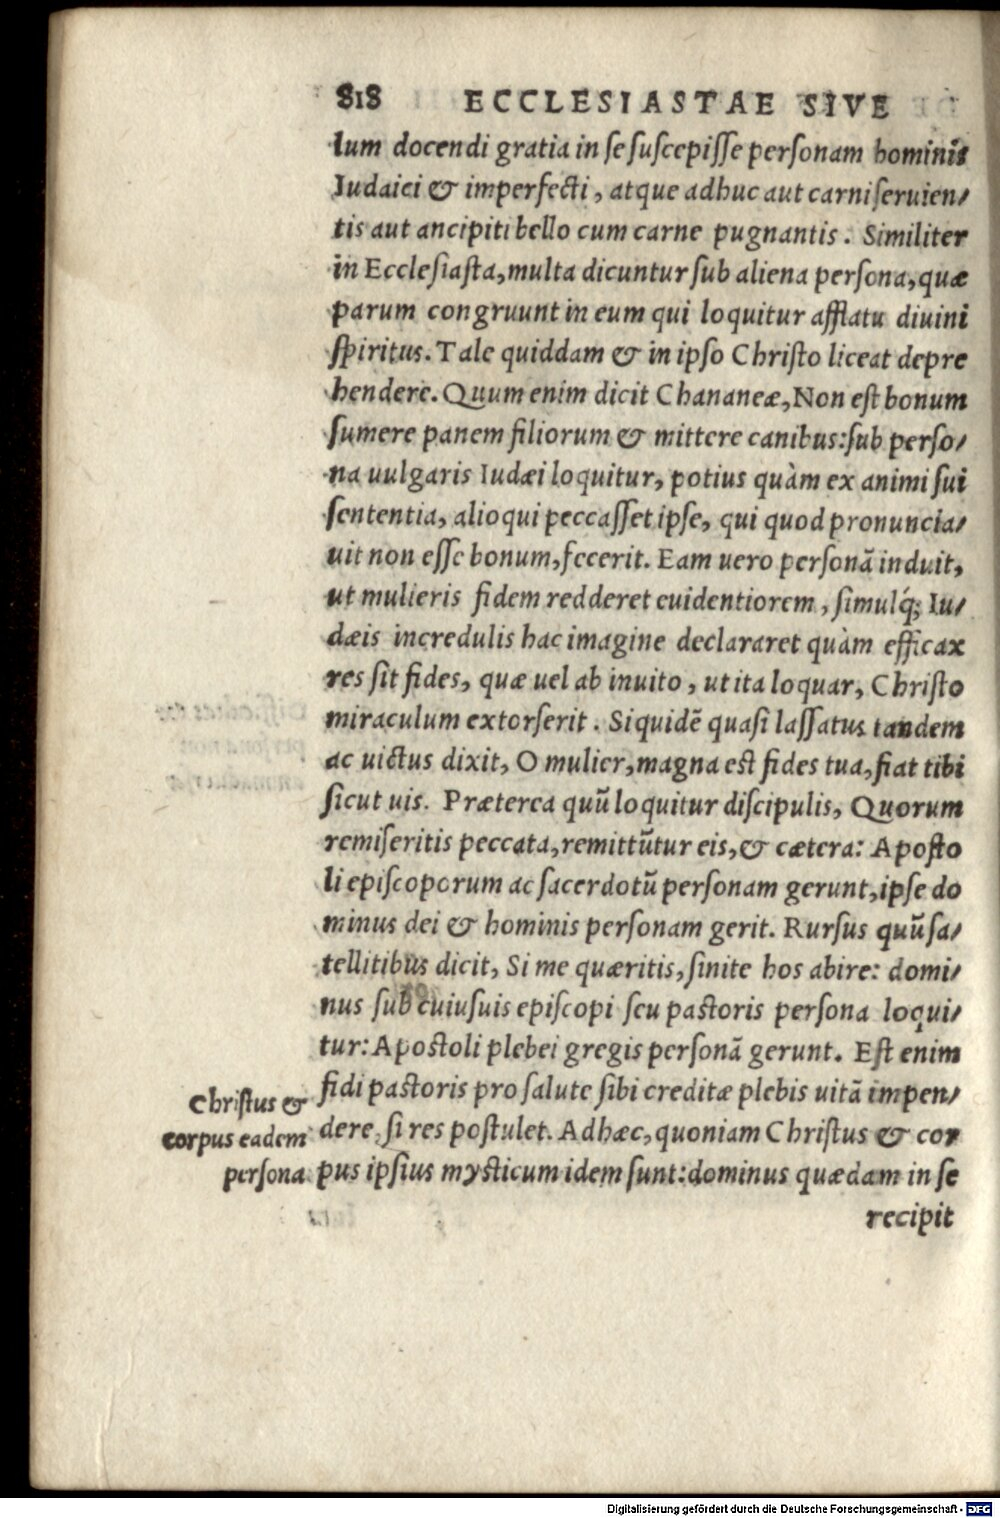 818 ECCLESIASTAE SIVE
lum docendi gratia in se suscepisse personam hominis
Iudaici & imperfecti, atque adhuc aut carni seruien/
tis aut ancipiti bello cum carne pugnantis. Similiter
in Ecclesiasta, multa dicuntur sub aliena persona, quæ
parum congruunt in eum qui loquitur afflatu diuini
spiritus. Tale quiddam & in ipso Christo liceat depre
hendere. Quum enim dicit Chananeæ, Non est bonum
sumere panem filiorum & mittere canibus: sub perso/
na uulgaris Iudæi loquitur, potius quàm ex animi sui
sententia, alioqui peccasset ipse, qui quod pronuncia/
uit non esse bonum, fecerit. Eam uero personã induit,
ut mulieris fidem redderet euidentiorem, simulq́; Iu/
dæis incredulis hac imagine declararet quàm efficax
res sit fides, quæ uel ab inuito, ut ita loquar, Christo
miraculum extorserit. Siquidẽ quasi lassatus tandem
ac uictus dixit, O mulier, magna est fides tua, fiat tibi
sicut uis. Præterea quũ loquitur discipulis, Quorum
remiseritis peccata, remittũtur eis, & cætera: Aposto
li episcoporum ac sacerdotũ personam gerunt, ipse do
minus dei & hominis personam gerit. Rursus quũ sa/
tellitibus dicit, Si me quæritis, sinite hos abire: domi/
nus sub cuiusuis episcopi seu pastoris persona loqui/
tur: Apostoli plebei gregis personã gerunt. Est enim
fidi pastoris pro salute sibi creditæ plebis uitã impen/
dere, si res postulet. Adhæc, quoniam Christus & cor
pus ipsius mysticum idem sunt: dominus quædam in se
recipit
Christus &
corpus eadem
persona
Digitalisierung gefördert durch die Deutsche Forschungsgemeinschaft - DFG